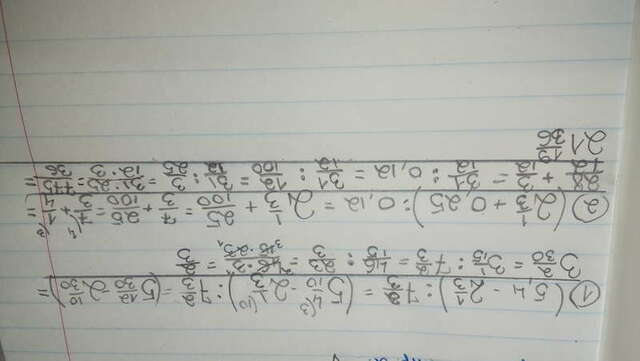 1) (5,4 - 2 1/3) : 7 2/3 = (5 4/10 - 2 1/3) : 7 2/3 = (5 12/30 - 2 10/30) =
3 2/30 = 3 1/15 : 7 2/3 = 46/15 : 23/3 = 46·3/15·23 = 2/5
2) (2 1/3 + 0,25) : 0,12 = 2 1/3 + 25/100 = 7/3 + 25/100 = 7/3 + 1/4 =
28/12 + 3/12 = 31/12 : 0,12 = 31/12 : 12/100 = 31/12 : 3/25 = 31·25/12·3 = 775/36
21 19/36